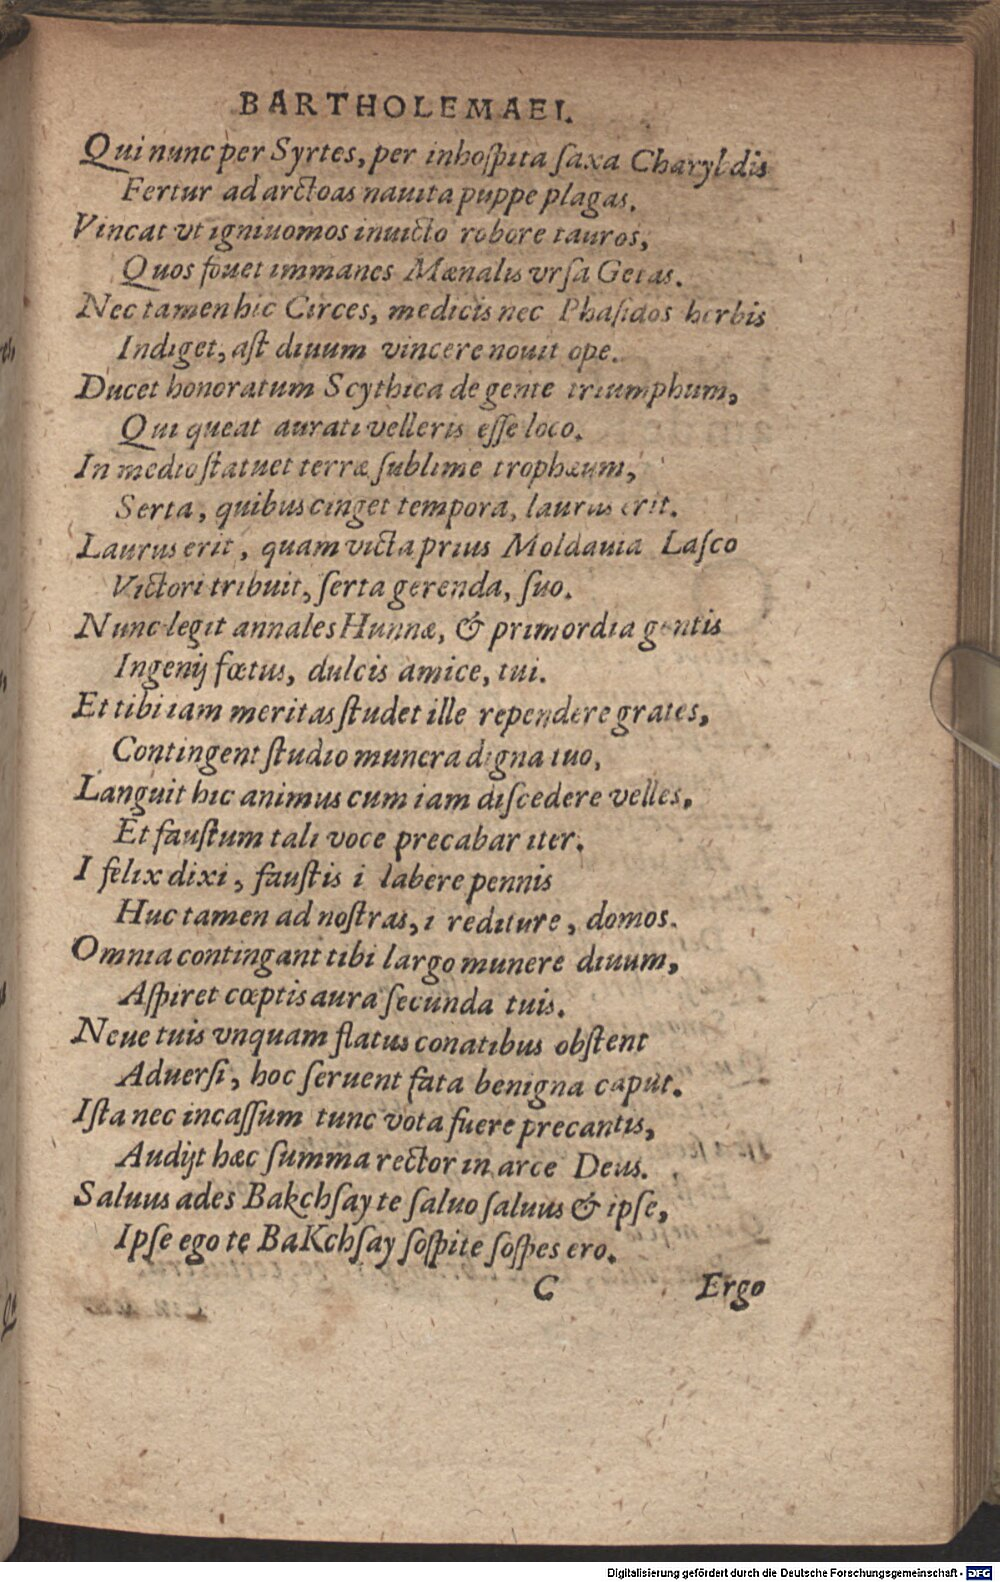 BARTHOLEMAEI.
Qui nunc per Syrtes, per inhoſpita ſaxa Charybdis
Fertur ad arctoas nauita puppe plagas.
Vincat vt igniuomos inuicto robore tauros,
Quos fouet immanes Mænalis vrſa Getas.
Nec tamen hic Circes, medicis nec Phaſidos herbis
Indiget, aſt diuum vincere nouit ope.
Ducet honoratum Scythica de gente triumphum,
Qui queat aurati velleris eſſe loco.
In medio ſtatuet terræ ſublime trophæum,
Serta, quibus cinget tempora, laurus erit.
Laurus erit, quam victa prius Moldauia Laſco
Victori tribuit, ſerta gerenda, ſuo.
Nunc legit annales Hunnæ, & primordia gentis
Ingenij fœtus, dulcis amice, tui.
Et tibi iam meritas ſtudet ille rependere grates,
Contingent ſtudio munera digna tuo,
Languit hic animus cum iam diſcedere velles,
Et fauſtum tali voce precabar iter.
I felix dixi, fauſtis i labere pennis
Huc tamen ad noſtras, i rediture, domos.
Omnia contingant tibi largo munere diuum,
Aſpiret cœptis aura ſecunda tuis.
Neue tuis vnquam flatus conatibus obſtent
Aduerſi, hoc ſeruent fata benigna caput.
Iſta nec incaſſum tunc vota fuere precantis,
Audijt hæc ſumma rector in arce Deus.
Saluus ades Bakchſay te ſaluo ſaluus & ipſe,
Ipſe ego te BaKchſay ſoſpite ſoſpes ero.
C Ergo
Digitalisierung gefördert durch die Deutsche Forschungsgemeinschaft - DFG